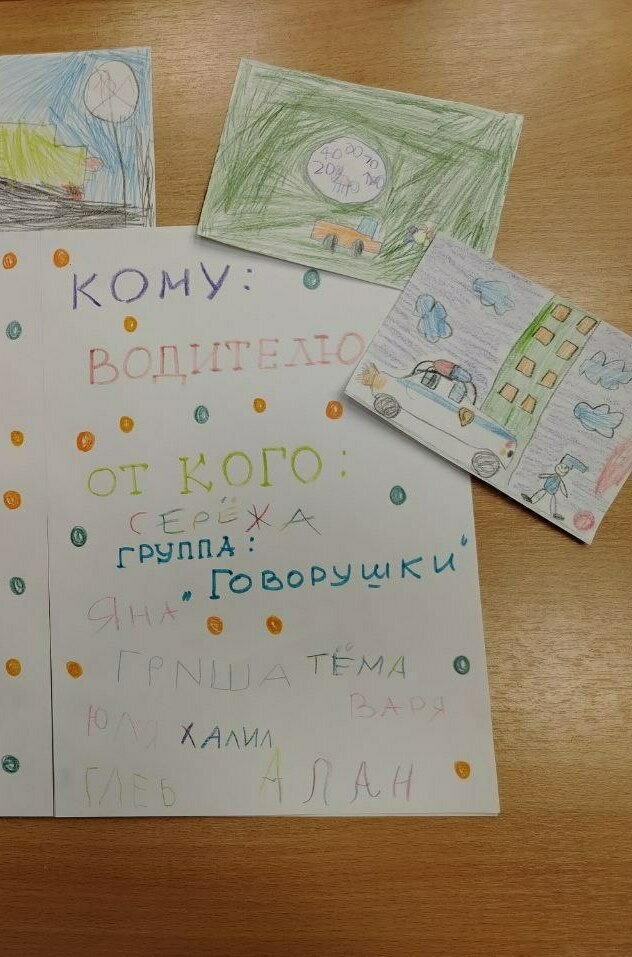 КОМУ:
ВОДИТЕЛЮ
ОТ КОГО:
СЕРЁЖА
ГРУППА:
„ГОВОРУШКИ“
ЯНА
ГРИША ТЁМА
ВАРЯ
ЮЛЯ ХАЛИЛ
ГЛЕБ АЛАН